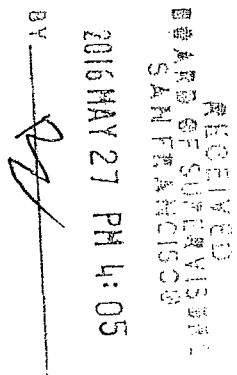 RECEIVED
BOARD OF SUPERVISORS
SAN FRANCISCO
2016 MAY 27 PM 4:05
BY